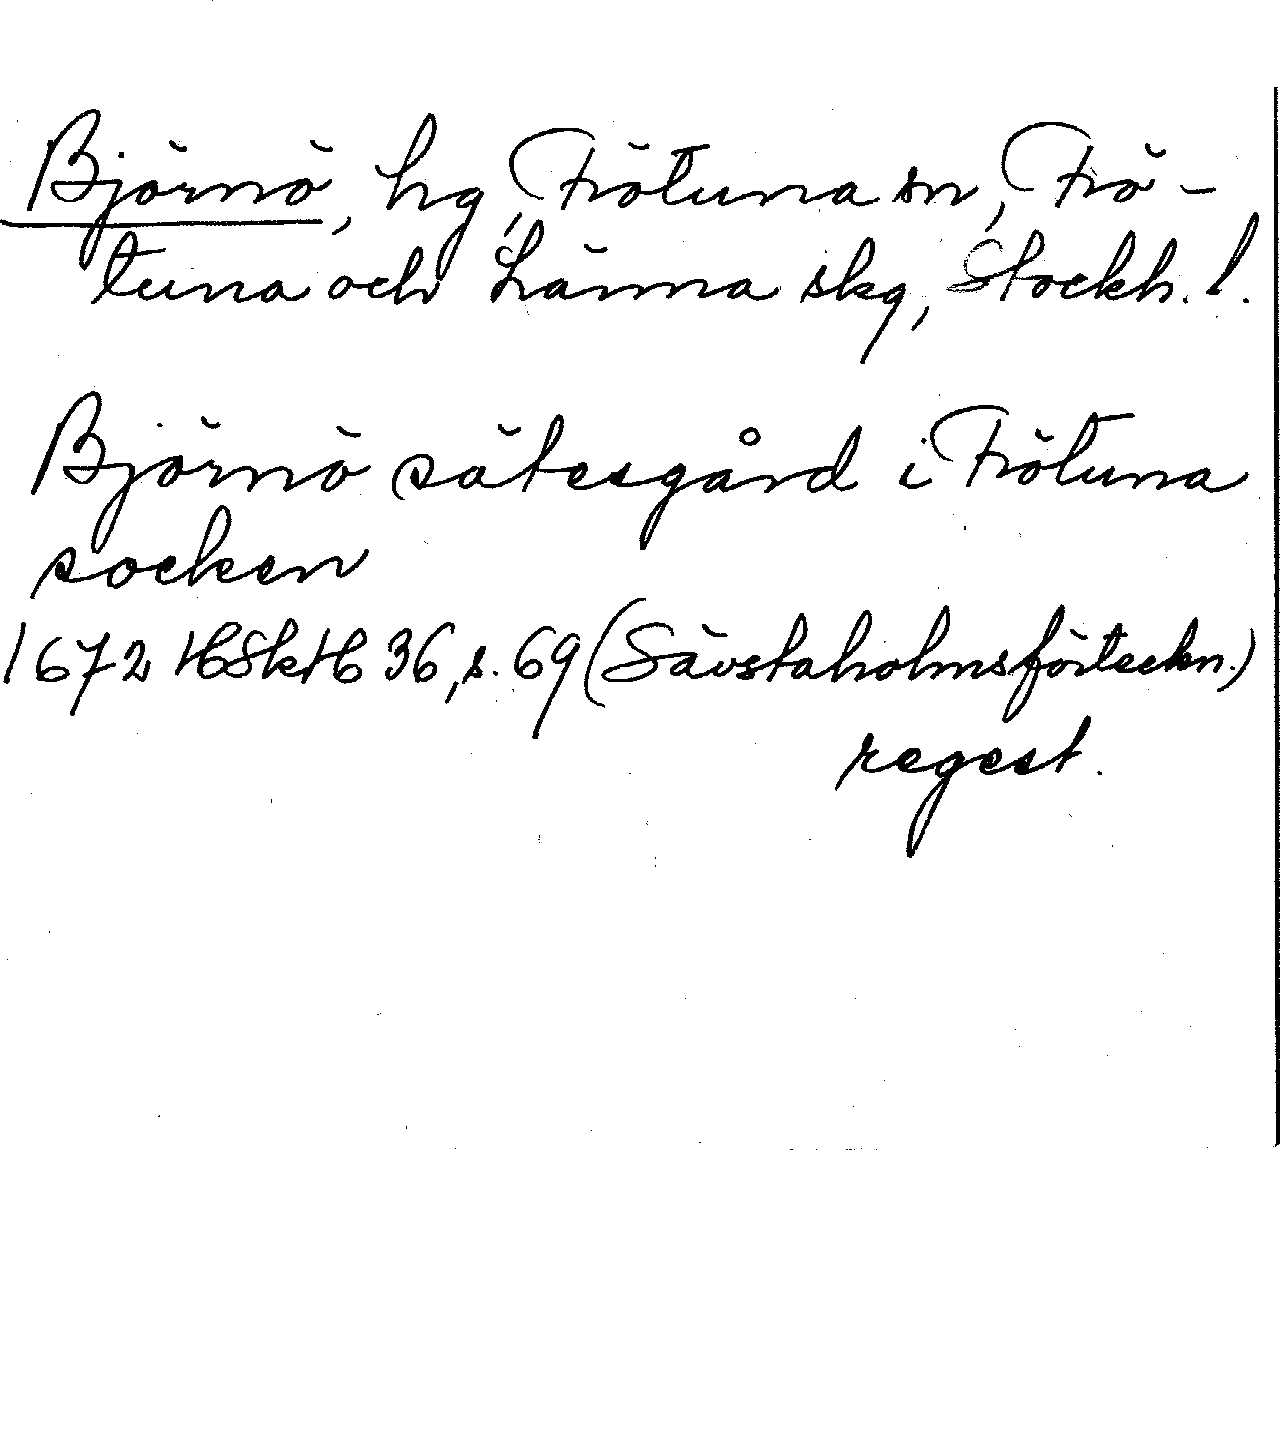 Björnö, hg, Frötuna sn, Frö-
tuna och Länna skg, Stockh. l.
Björnö sätesgård i Frötuna
socken
1672 HSkH 36, s. 69 (Sävstaholmsförteckn.)
regest.